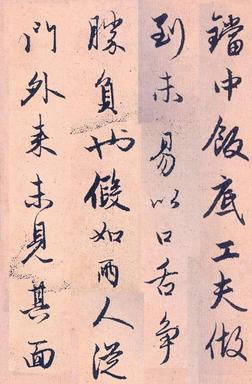 鐺中飯底工夫做
到未易以口舌争
勝負也假如兩人從
門外来未見其面